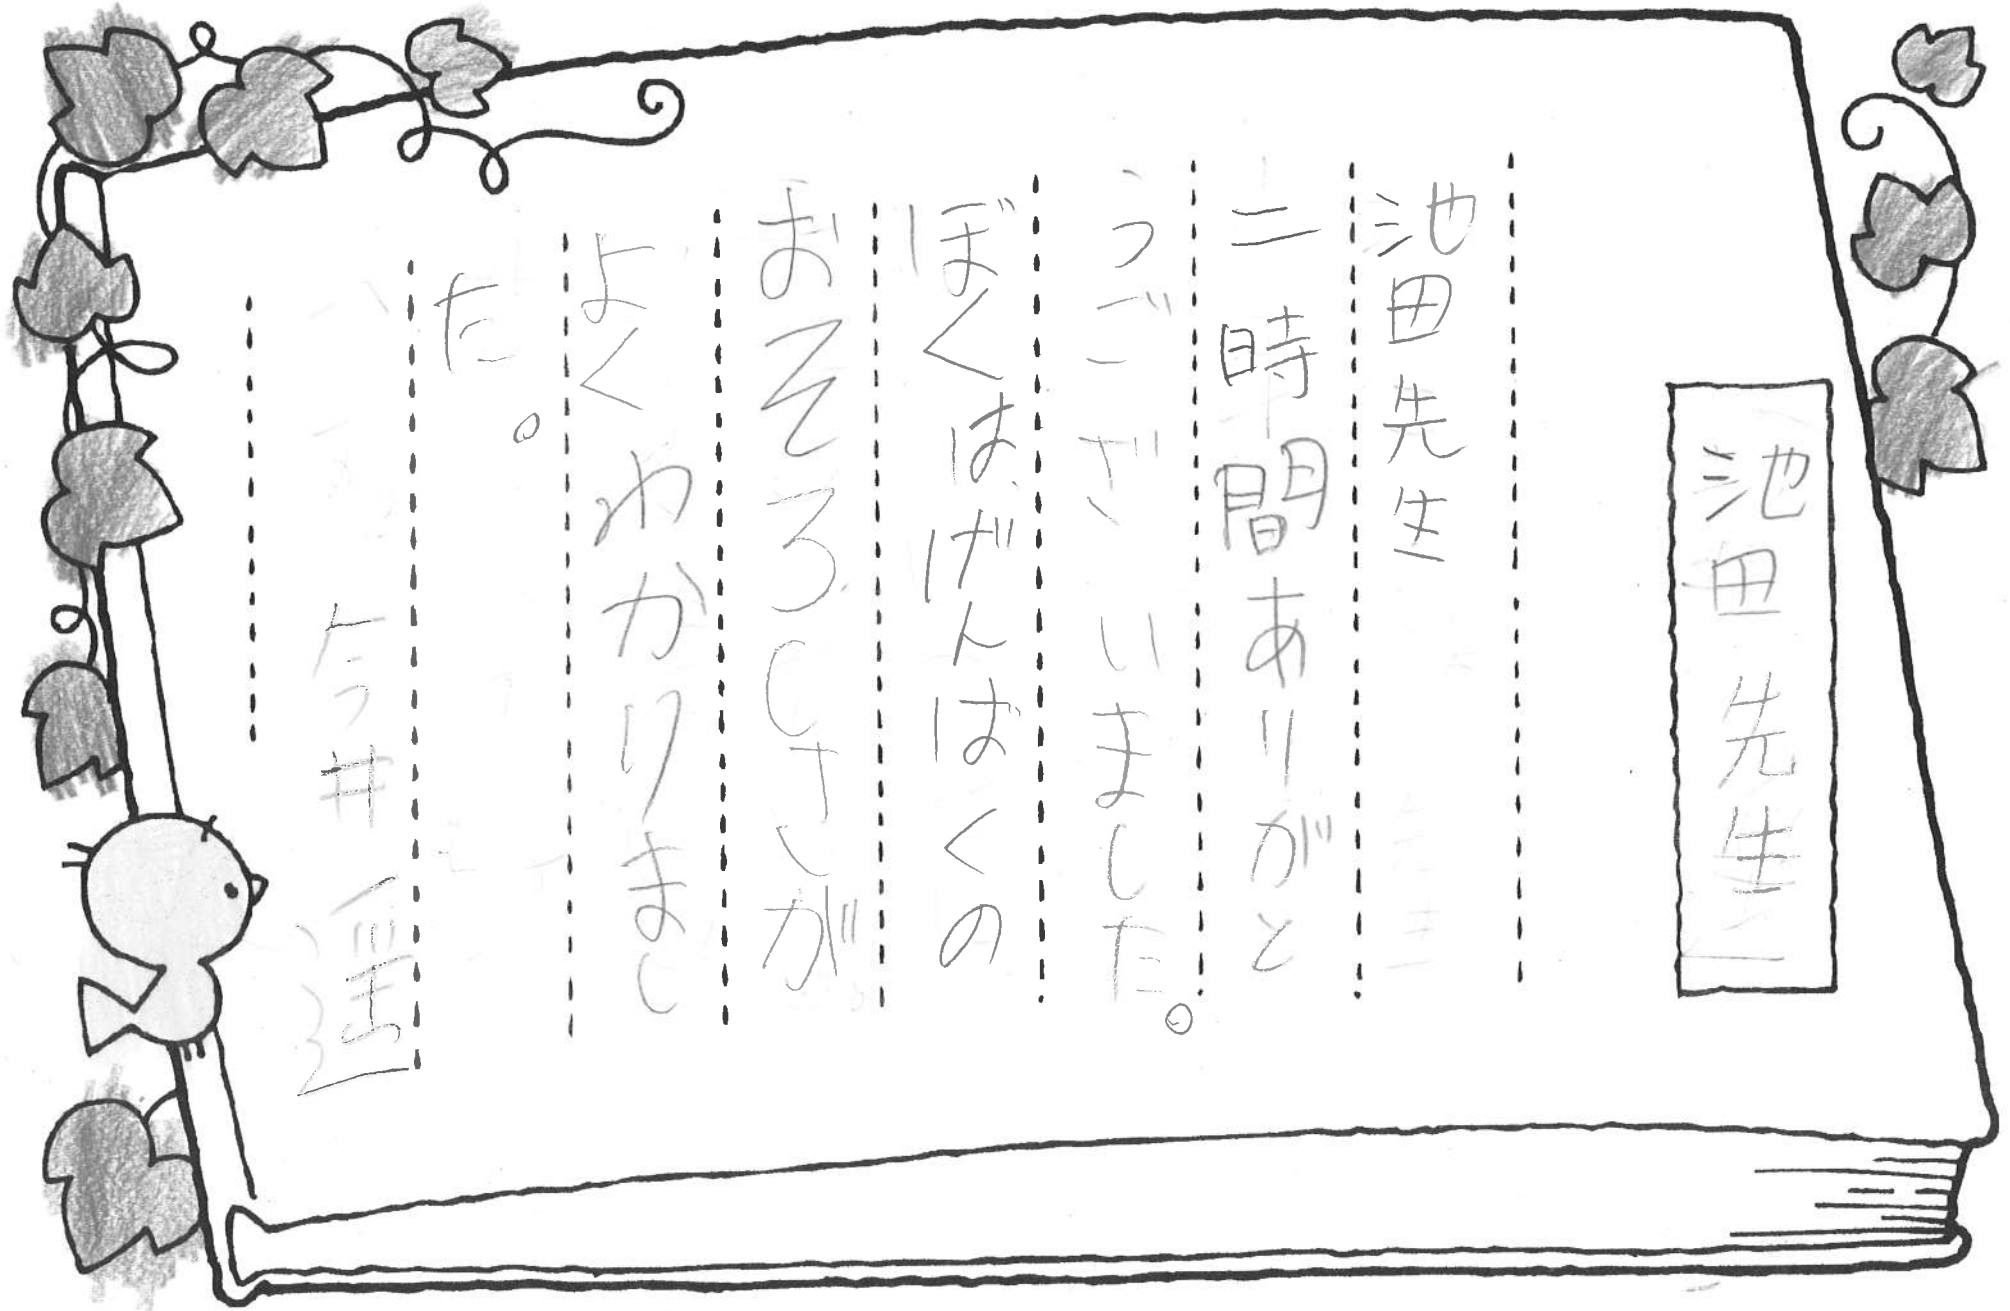 池田先生
池田先生
二時間ありがと
うございました。
ぼくはげんばくの
おそろしさが
よくわかりまし
た。
今井